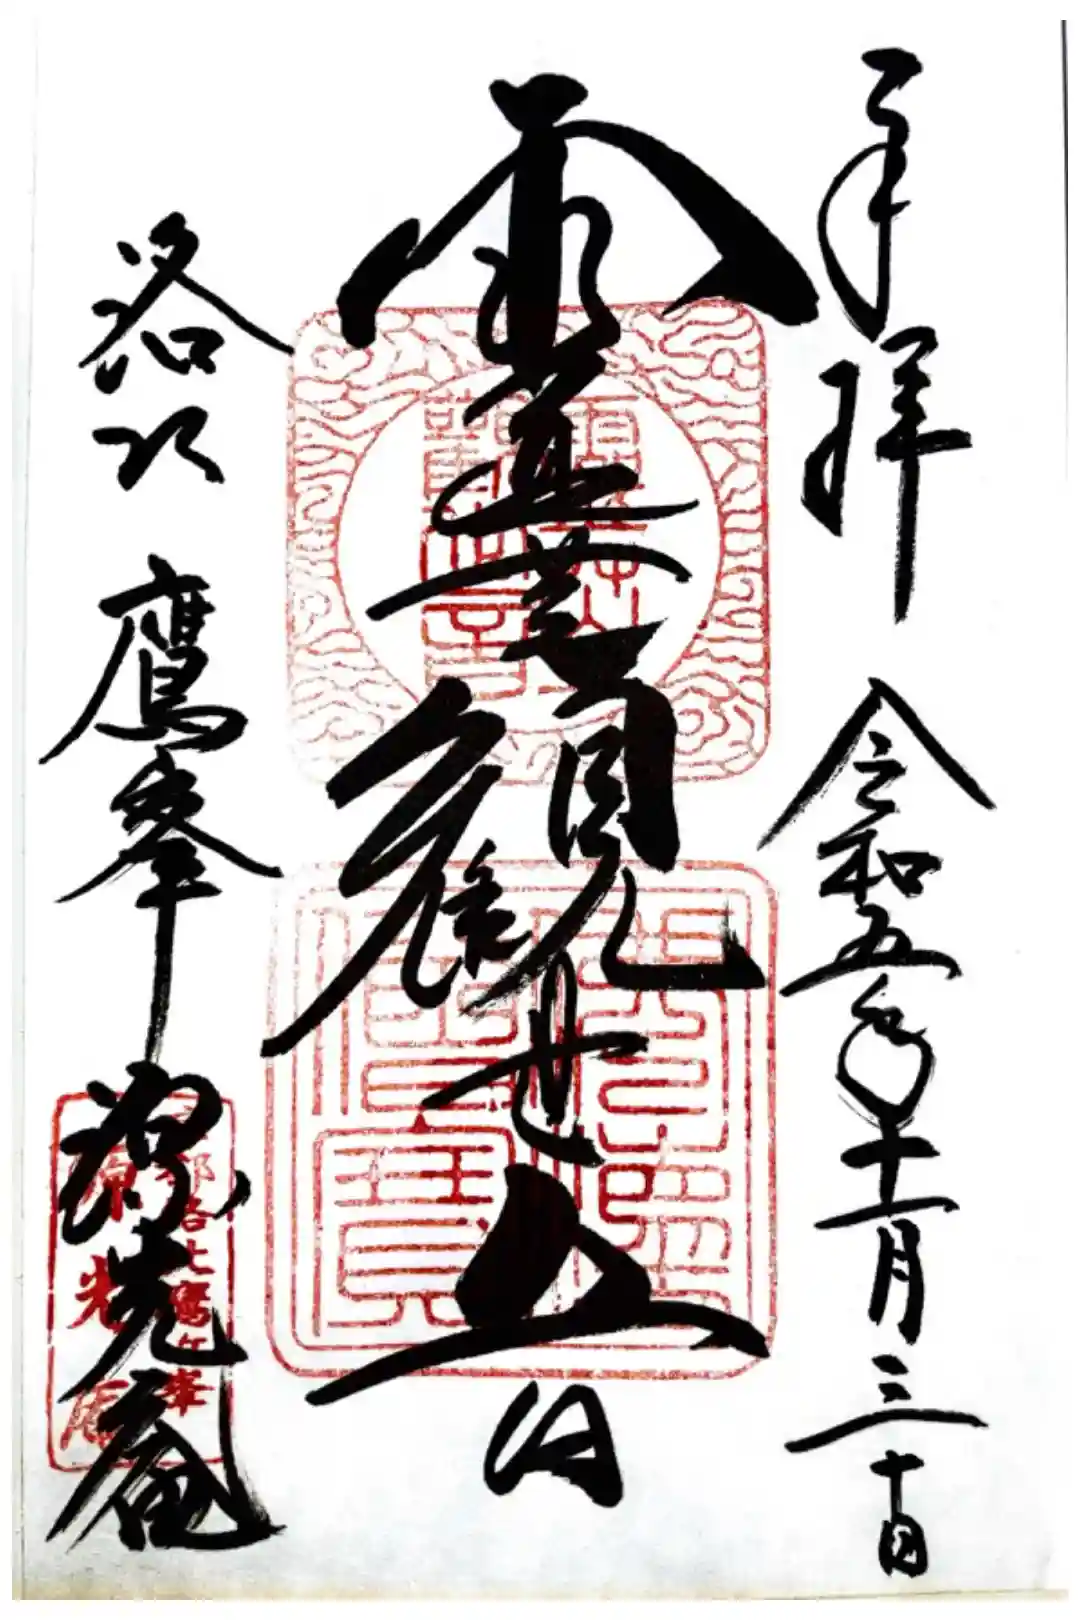 奉拝 令和五年十一月三十日
霊芝観世音
洛北 鷹峯 源光庵
京都洛北鷹ケ峯
源光庵